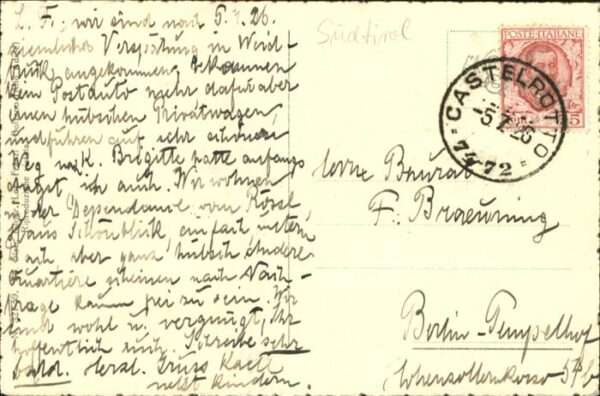 L. F., wir sind nach 5.7.26.
ziemlicher Verspätung in Waid-
bruck angekommen, bekamen
kein Postauto mehr dafür aber
einen hübschen Privatwagen,
und fuhren auf sehr schönem
Weg nach K. Brigitte hatte anfangs
Angst, ich auch. Wir wohnen
in der Dependance vom Rössl
Haus Schönblick, einfach
aber ganz hübsch. Andere
Quartiere scheinen nach Nach-
frage kaum frei zu sein. Wir
sind wohl u. vergnügt, Ihr
hoffentlich auch. Schreibe sehr
bald. Herzl. Gruss
nebst Kindern.
Südtirol
POSTE ITALIANE
CASTELROTTO
-5.7.26
74-72
Baurat
F. Braeuning
Berlin-Tempelhof
Hohenzollernkorso 57b